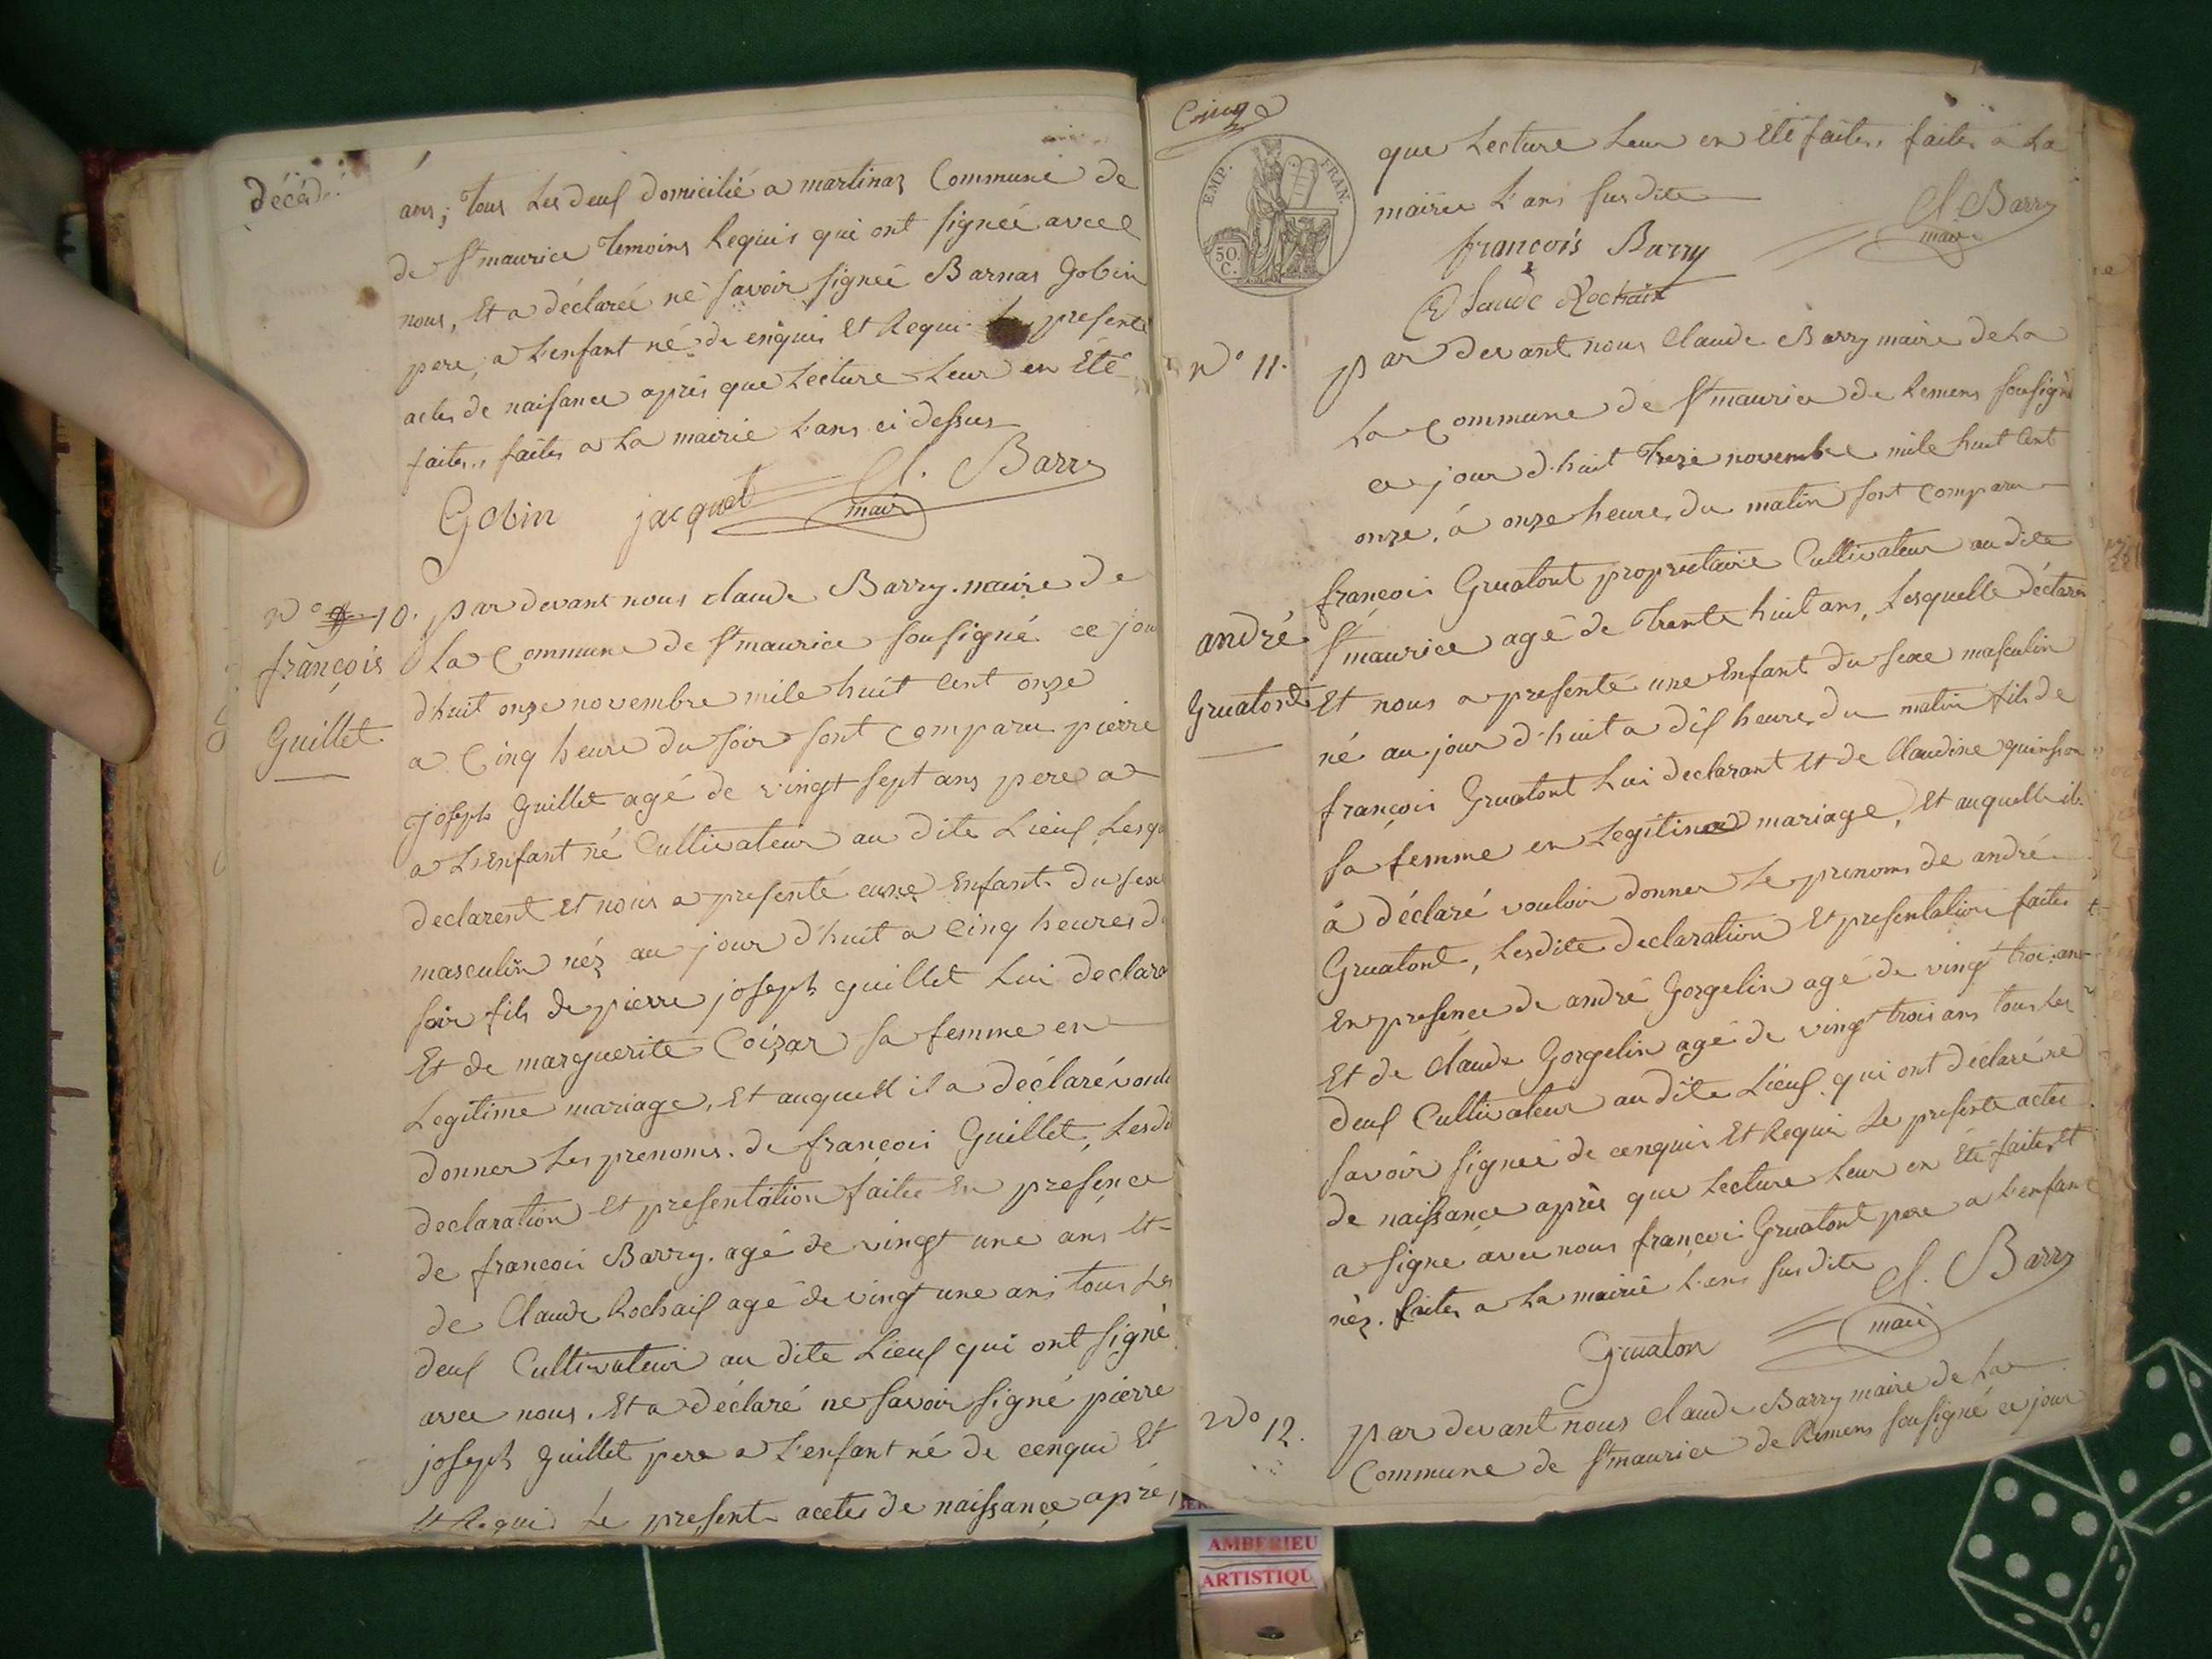 décédé
ans; tous Les deux domicilié a martinaz Commune de
de St maurice temoins Requis qui ont signeé avec
nous, Et a déclareé ne savoir signeé Barnar Gobin
pere, a L'enfant né de enquis Et Requi Le presente
actes de naisance aprés que Lecture Leur en Eté
faites, faites a La mairie L'ans ci dessus
Gobin jacquet Cl. Barry
mair
N° 10. par devant nous claude Barry. maire de
françois La Commune de St maurice sousigné ce jou
d'huit onze novembre mile huit Cent onze
Guillet a Cinq heure du soir sont Comparu pierre
joseph Guillet agé de vingt sept ans pere a
a L'enfant né Cultivateur au dite Lieux, Lesqu
declarent Et nous a presenté une Enfant du sexe
masculin néz au jour d'huit a Cinq heures d
soir fils de pierre joseph guillet Lui declara
Et de marguerite Coizar sa femme en
Legitime mariage, Et auquell il a déclaré voulo
donner Les prenoms. de françois Guillet, Lesdi
declaration Et presentation faites En presence
de francois Barry. agé de vingt une ans Et
de Claude Rochaix agé de vingt une ans tous Les
deux Cultivateur au dite Lieux qui ont signé
avec nous. Et a déclaré ne savoir signé pierre
joseph guillet pere a L'enfant né de cenqui Et
Et Requi Le present actes de naissance apré,
Cinq
EMP. FRAN.
50.
C.
que Lecture Leur en Eté faites, faites a La
mairie L'ans susdite
Cl. Barry
mair
francois Barry
Claude Rochaix
N° 11. par devant nous Claude Barry maire de La
La Commune de St maurice de Remens sousigné
ce jour d'huit treze novembre mile huit Cent
onze, á onze heure, du matin sont Comparu
françois Gruatont proprietaire Cultivateur au dite
andré St maurice agé de trente huit ans, Lesquelle déclaren
Gruatont Et nous a presenté une Enfant du sexe masculin
né au jour d'huit a dix heure, du matin fils de
françois Gruatont Lui declarant Et de Claudine quinsson
sa femme en Legitime mariage, Et auquelle il
á déclaré vouloir donner Le prenoms de andré
Gruatont, Lesdite declaration Et presentation faites
En presence de andré Gorgelin agé de vingt trois ans
Et de Claude Gorgelin agé de vingt trois ans tous Les
deux Cultivateur au dite Lieux qui ont déclaré ne
savoir signeé de cenquis Et Requis Le presente actes
de naissance aprés que Lecture Leur en Eté faites, Et
a signé avec nous françois Gruatont pere a L'enfant
néz. faites a La mairie L'ans susdite
Cl. Barry
mair
Gruaton
N° 12. par devant nous Claude Barry maire de La
Commune de St maurice de Remens sousigné ce jour
AMBERIEU
ARTISTIQU